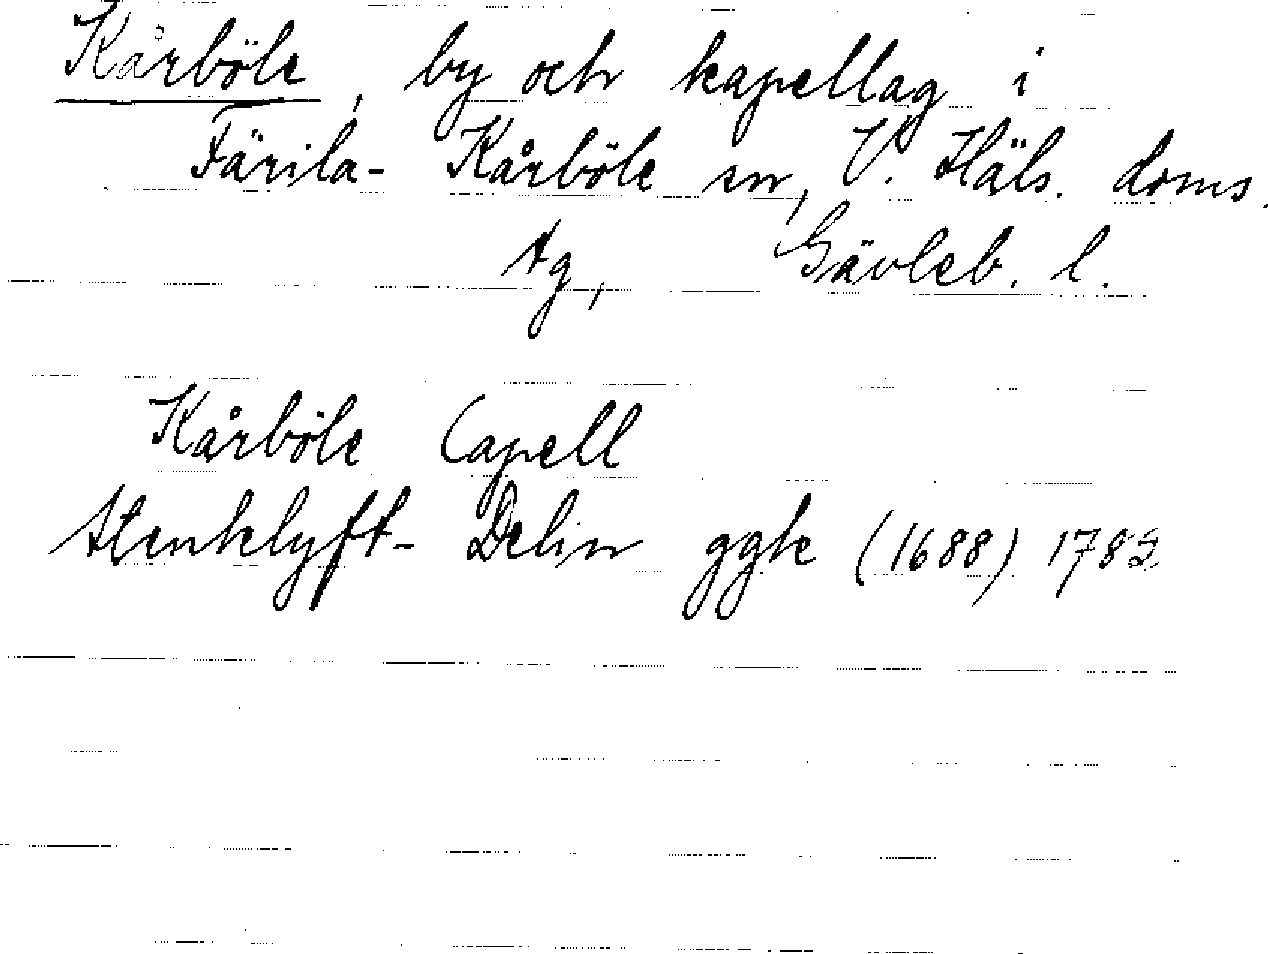 Kårböle, by och kapellag i
Färila-Kårböle sn, V. Häls. doms.
tg, Gävleb. l.
Kårböle Capell
Stenklyft-Delin ggk (1688) 1783